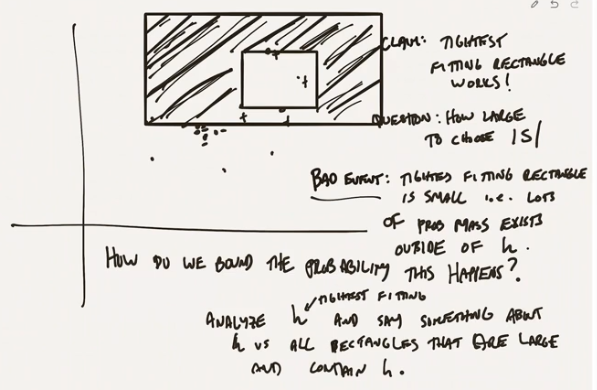 CLAIM: TIGHTEST
FITTING RECTANGLE
WORKS!
QUESTION: HOW LARGE
TO CHOOSE |S|
BAD EVENT: TIGHTEST FITTING RECTANGLE
IS SMALL i.e. LOTS
OF PROB MASS EXISTS
OUTSIDE OF h.
HOW DO WE BOUND THE PROBABILITY THIS HAPPENS?
TIGHTEST FITTING
ANALYZE h AND SAY SOMETHING ABOUT
h VS ALL RECTANGLES THAT ARE LARGE
AND CONTAIN h.